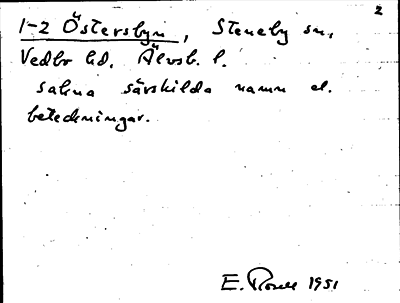 2
1-2 Östersbyn, Steneby sn,
Vedbo hd. Älvsb. l.
sakna särskilda namn el.
beteckningar.
E. 1951